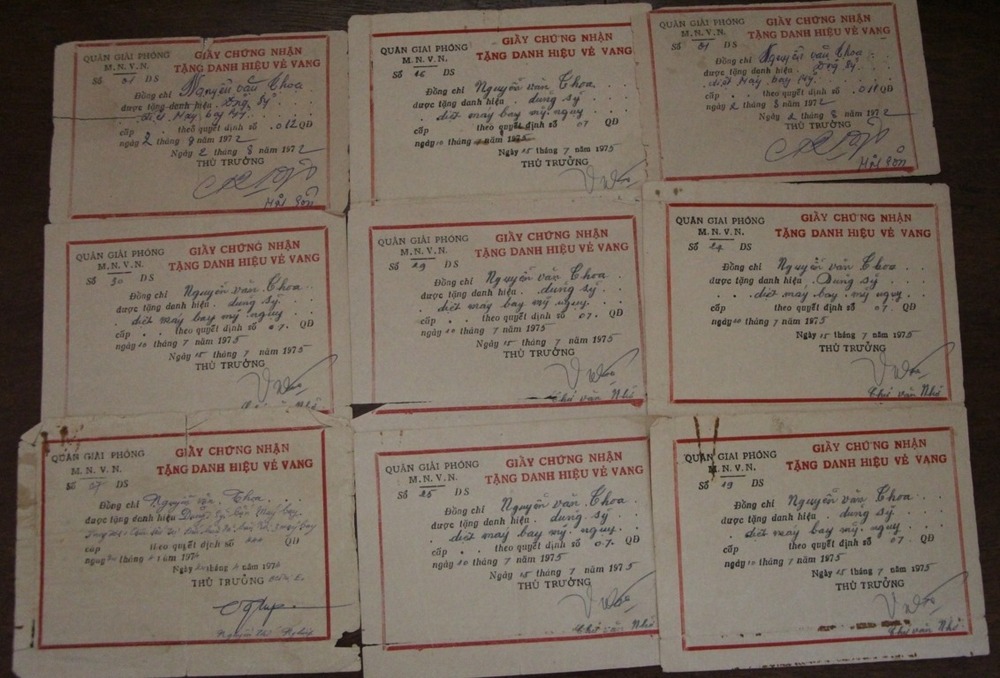 QUÂN GIẢI PHÓNG
M.N.V.N.
Số 31 DS
GIẤY CHỨNG NHẬN
TẶNG DANH HIỆU VẺ VANG
Đồng chí Nguyễn văn Thoa
được tặng danh hiệu Dũng sỹ
diệt máy bay Mỹ
cấp theo quyết định số 012 QĐ
ngày 2 tháng 8 năm 1972
Ngày 2 tháng 8 năm 1972
THỦ TRƯỞNG
QUÂN GIẢI PHÓNG
M.N.V.N.
Số 16 DS
GIẤY CHỨNG NHẬN
TẶNG DANH HIỆU VẺ VANG
Đồng chí Nguyễn văn Thoa
được tặng danh hiệu dũng sỹ
diệt máy bay mỹ ngụy
cấp theo quyết định số 07 QĐ
ngày 10 1975
Ngày 15 tháng 7 năm 1975
THỦ TRƯỞNG
QUÂN GIẢI PHÓNG
M.N.V.N.
Số 31 DS
GIẤY CHỨNG NHẬN
TẶNG DANH HIỆU VẺ VANG
Đồng chí Nguyễn văn Thoa
được tặng danh hiệu Dũng sỹ
diệt máy bay Mỹ
cấp theo quyết định số QĐ
ngày 2 tháng 8 năm 1972
Ngày 2 tháng 8 năm 1972
THỦ TRƯỞNG
QUÂN GIẢI PHÓNG
M.N.V.N.
Số 30 DS
GIẤY CHỨNG NHẬN
TẶNG DANH HIỆU VẺ VANG
Đồng chí Nguyễn văn Thoa
được tặng danh hiệu dũng sỹ
diệt máy bay mỹ ngụy
cấp theo quyết định số 07 QĐ
ngày 10 tháng 7 năm 1975
Ngày 15 tháng 7 năm 1975
THỦ TRƯỞNG
QUÂN GIẢI PHÓNG
M.N.V.N.
Số 29 DS
GIẤY CHỨNG NHẬN
TẶNG DANH HIỆU VẺ VANG
Đồng chí Nguyễn văn Thoa
được tặng danh hiệu dũng sỹ
diệt máy bay mỹ ngụy
cấp theo quyết định số 07 QĐ
ngày 10 tháng 7 năm 1975
Ngày 15 tháng 7 năm 1975
THỦ TRƯỞNG
văn Nhỏ
QUÂN GIẢI PHÓNG
M.N.V.N.
Số 24 DS
GIẤY CHỨNG NHẬN
TẶNG DANH HIỆU VẺ VANG
Đồng chí Nguyễn văn Thoa
được tặng danh hiệu Dũng sỹ
diệt máy bay mỹ ngụy
cấp theo quyết định số 07 QĐ
ngày 10 tháng 7 năm 1975
Ngày 15 tháng 7 năm 1975
THỦ TRƯỞNG
văn Nhỏ
QUÂN GIẢI PHÓNG
M.N.V.N.
Số DS
GIẤY CHỨNG NHẬN
TẶNG DANH HIỆU VẺ VANG
Đồng chí Nguyễn văn Thoa
được tặng danh hiệu Dũng sỹ
cấp theo quyết định số QĐ
ngày năm
Ngày tháng năm
THỦ TRƯỞNG
Nguyễn
QUÂN GIẢI PHÓNG
M.N.V.N.
Số 25 DS
GIẤY CHỨNG NHẬN
TẶNG DANH HIỆU VẺ VANG
Đồng chí Nguyễn văn Thoa
được tặng danh hiệu dũng sỹ
diệt máy bay mỹ ngụy
cấp theo quyết định số 07 QĐ
ngày 10 tháng 7 năm 1975
Ngày 15 tháng 7 năm 1975
THỦ TRƯỞNG
văn Nhỏ
QUÂN GIẢI PHÓNG
M.N.V.N.
Số 19 DS
GIẤY CHỨNG NHẬN
TẶNG DANH HIỆU VẺ VANG
Đồng chí Nguyễn văn Thoa
được tặng danh hiệu dũng sỹ
diệt máy bay mỹ ngụy
cấp theo quyết định số 07 QĐ
ngày 10 tháng 7 năm 1975
Ngày 15 tháng 7 năm 1975
THỦ TRƯỞNG
văn Nhỏ